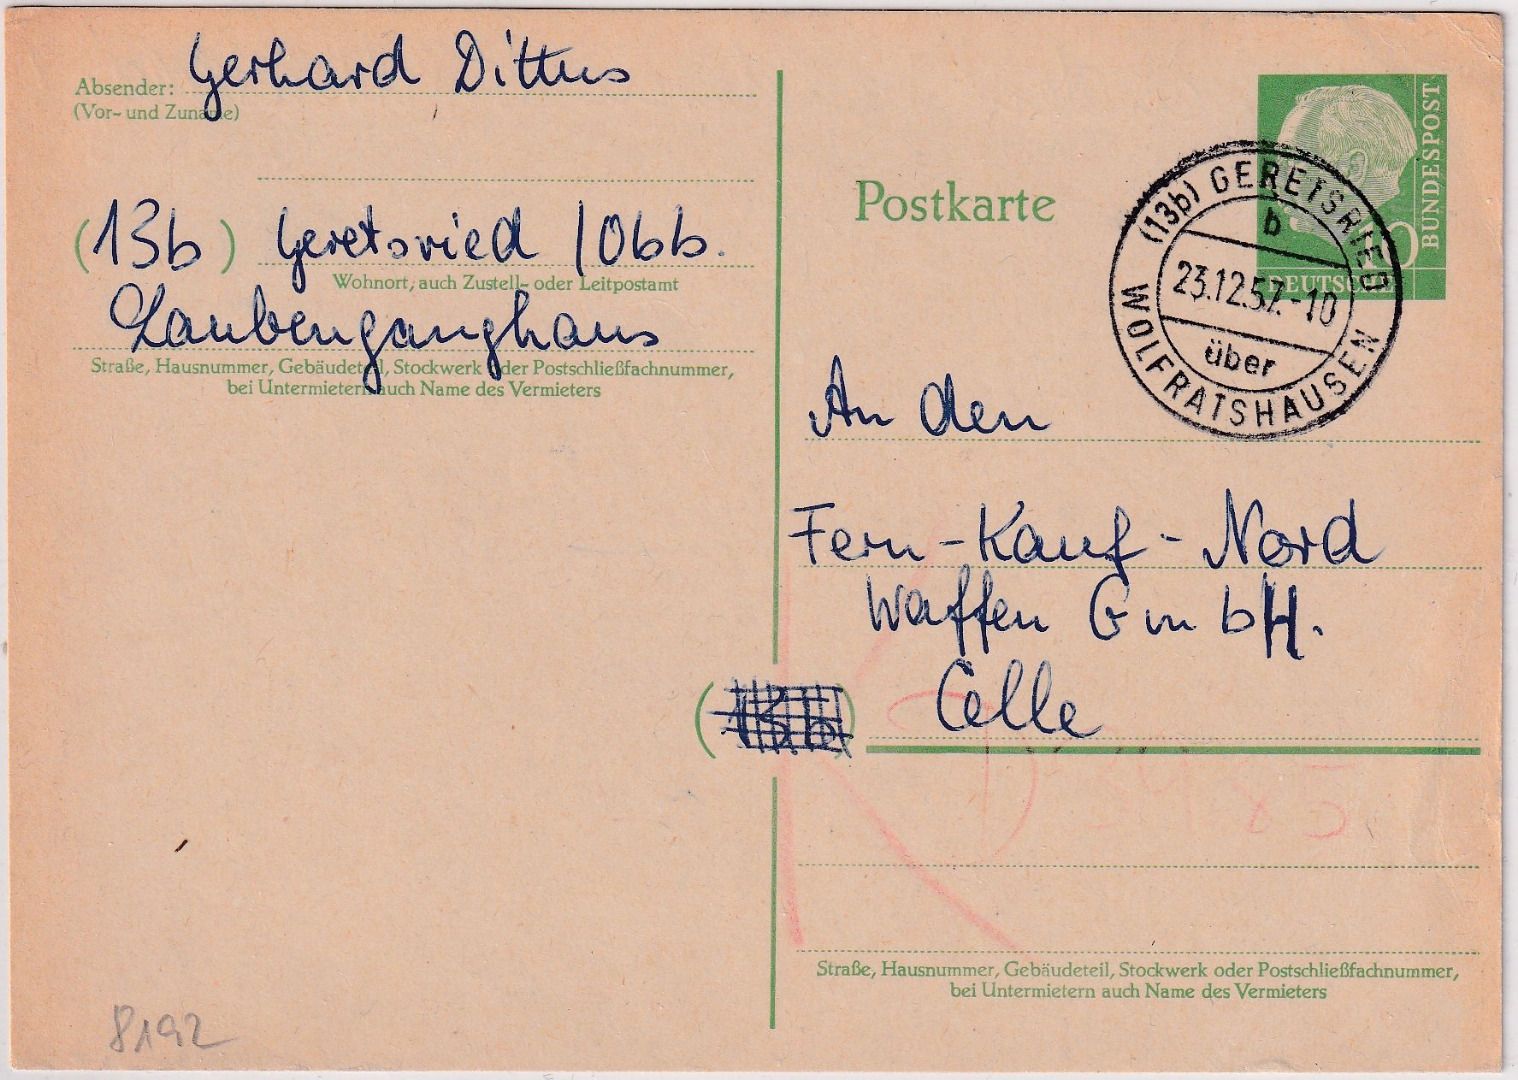 Absender: Gerhard Dittus
(Vor- und Zuname)
(13b) Geretsried /Obb.
Wohnort, auch Zustell- oder Leitpostamt
Laubenganghaus
Straße, Hausnummer, Gebäudeteil, Stockwerk oder Postschließfachnummer,
bei Untermietern auch Name des Vermieters
Postkarte
DEUTSCHE
BUNDESPOST
(13b) GERETSRIED
b
23.12.57.-10
über
WOLFRATSHAUSEN
An den
Fern-Kauf-Nord
Waffen GmbH.
(13b) Celle
Straße, Hausnummer, Gebäudeteil, Stockwerk oder Postschließfachnummer,
bei Untermietern auch Name des Vermieters
8192